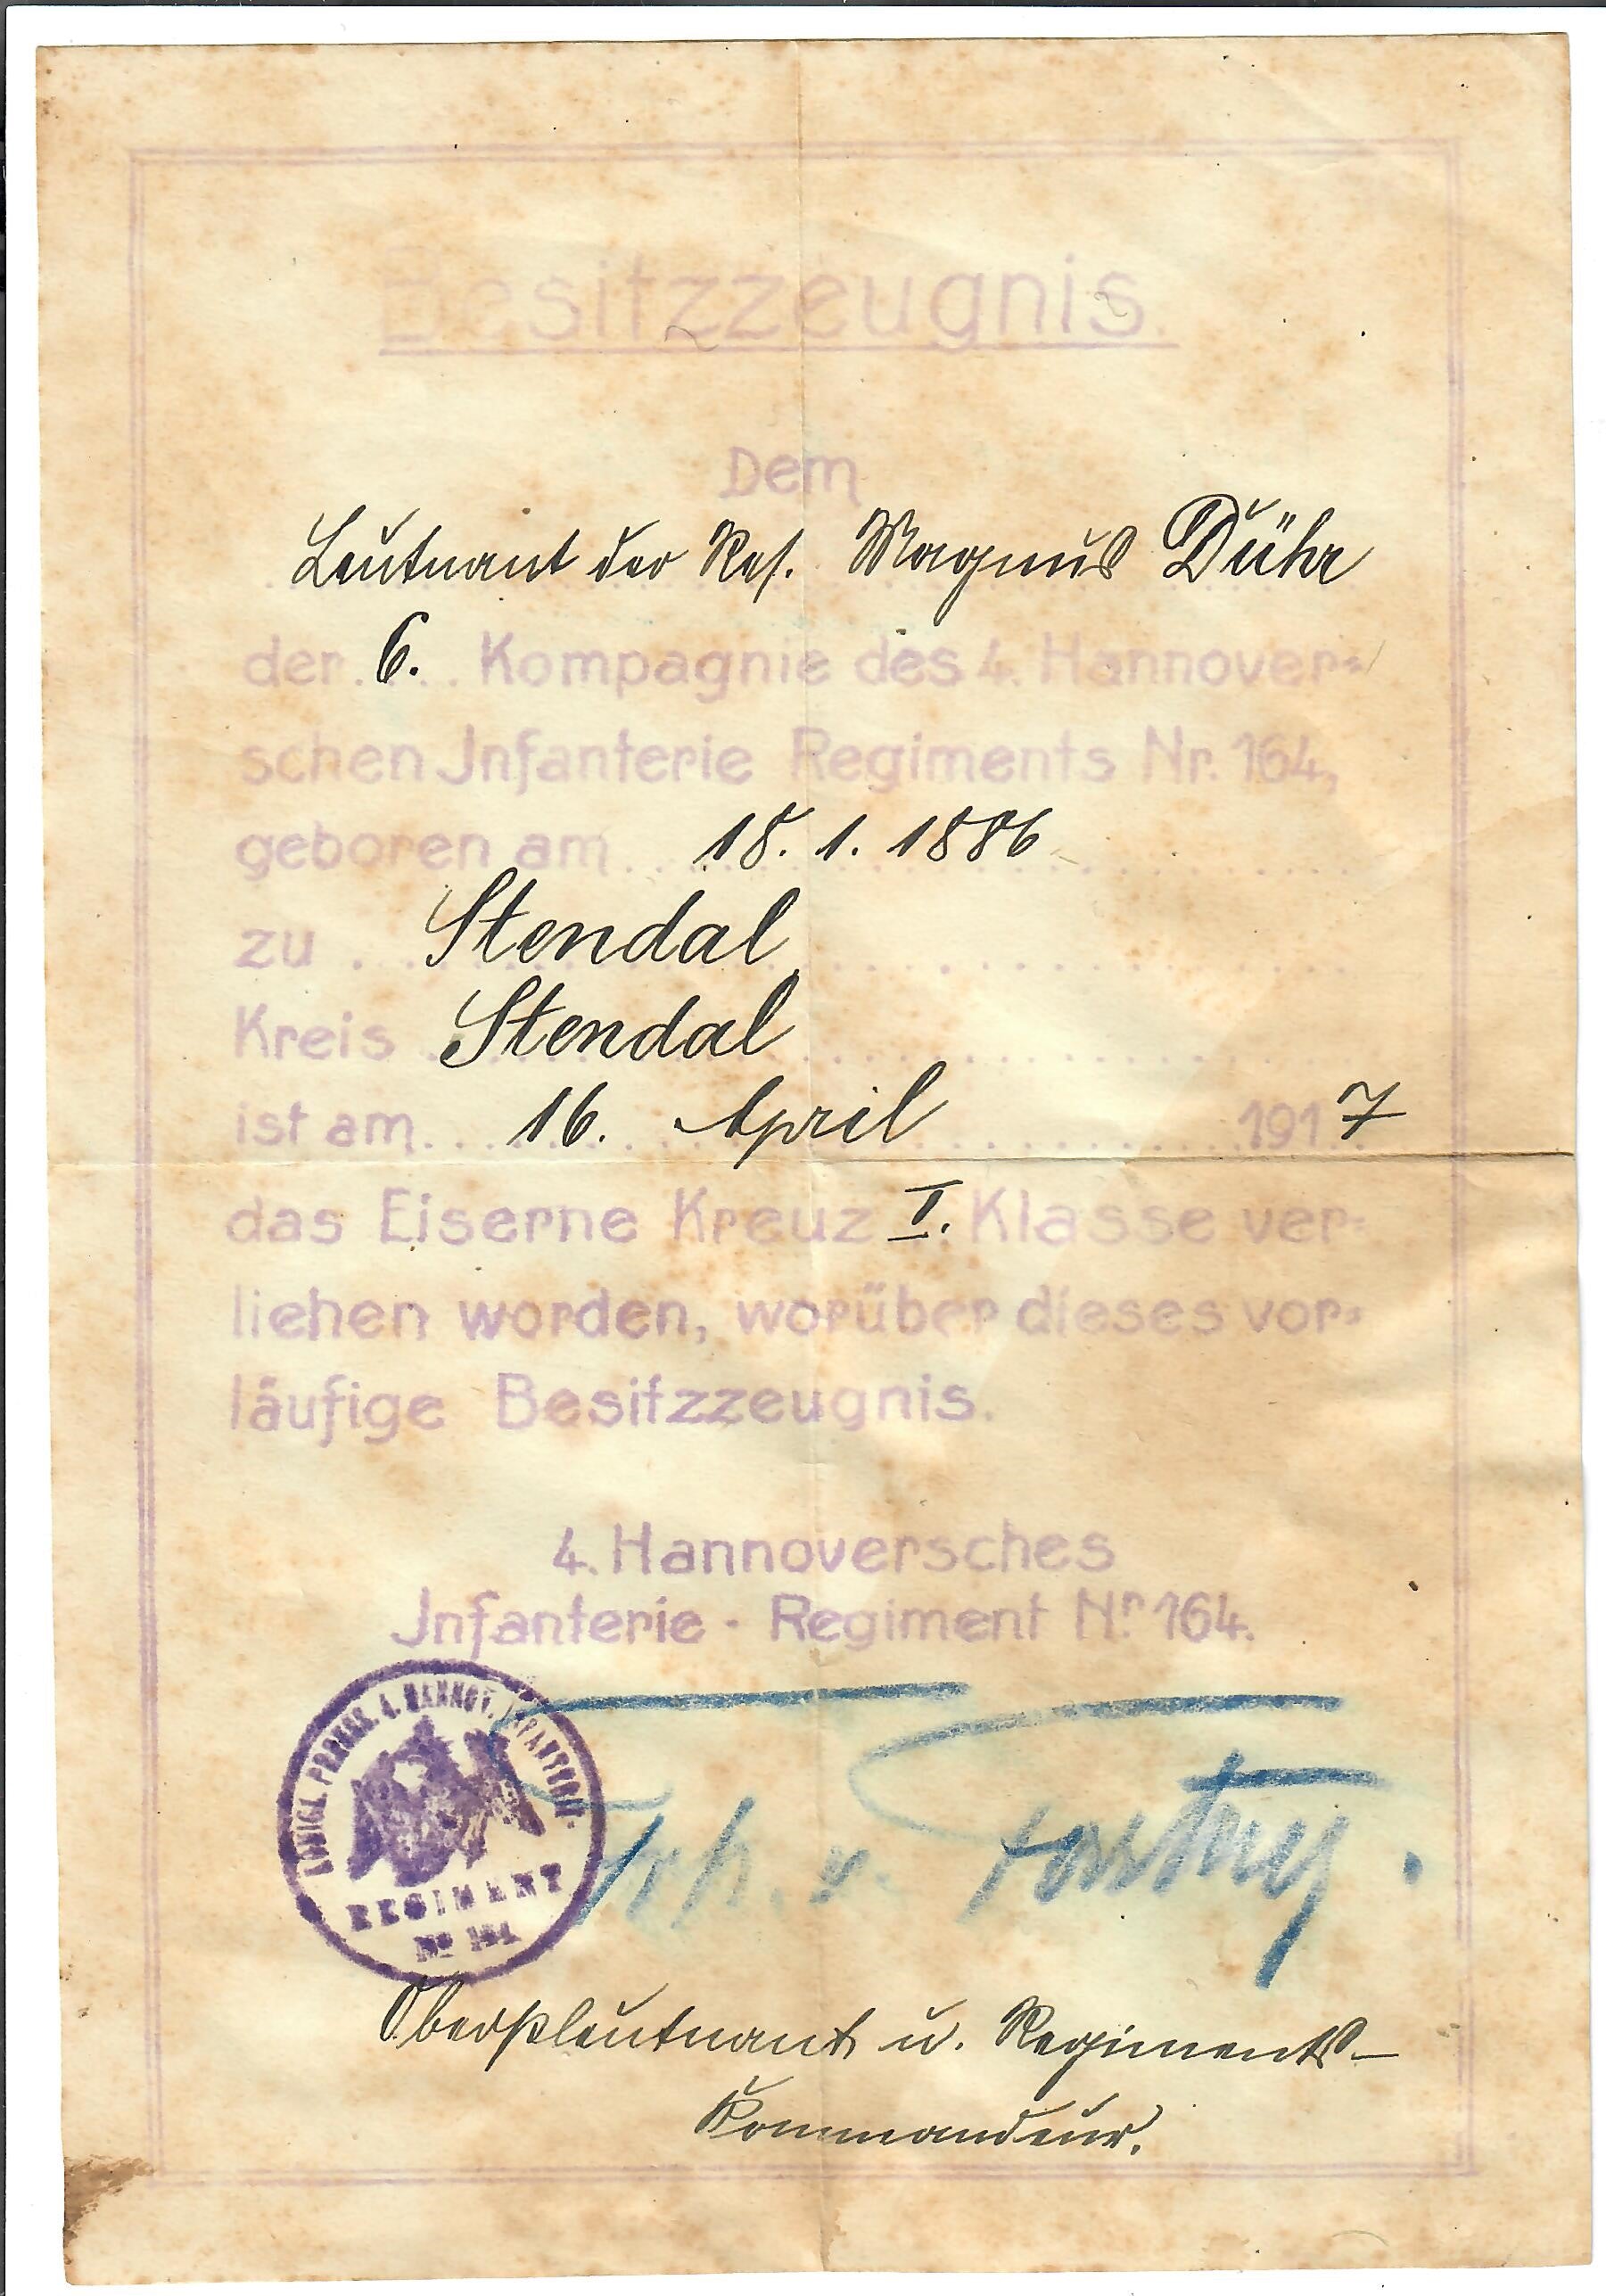 Besitzzeugnis.
Dem
Leutnant der Res. Magnus Dühr
der 6. Kompagnie des 4. Hannover=
schen Jnfanterie Regiments Nr. 164,
geboren am 18. 1. 1886
zu Stendal
Kreis Stendal
ist am 16. April 1917
das Eiserne Kreuz I. Klasse ver=
liehen worden, worüber dieses vor=
läufige Besitzzeugnis.
4. Hannoversches
Jnfanterie - Regiment Nr. 164.
KÖNIGL. PREUSS. 4. HANNOV. INFANTERIE-
REGIMENT
No 164
Frh. v.
Oberstleutnant u. Regiments-
Kommandeur.